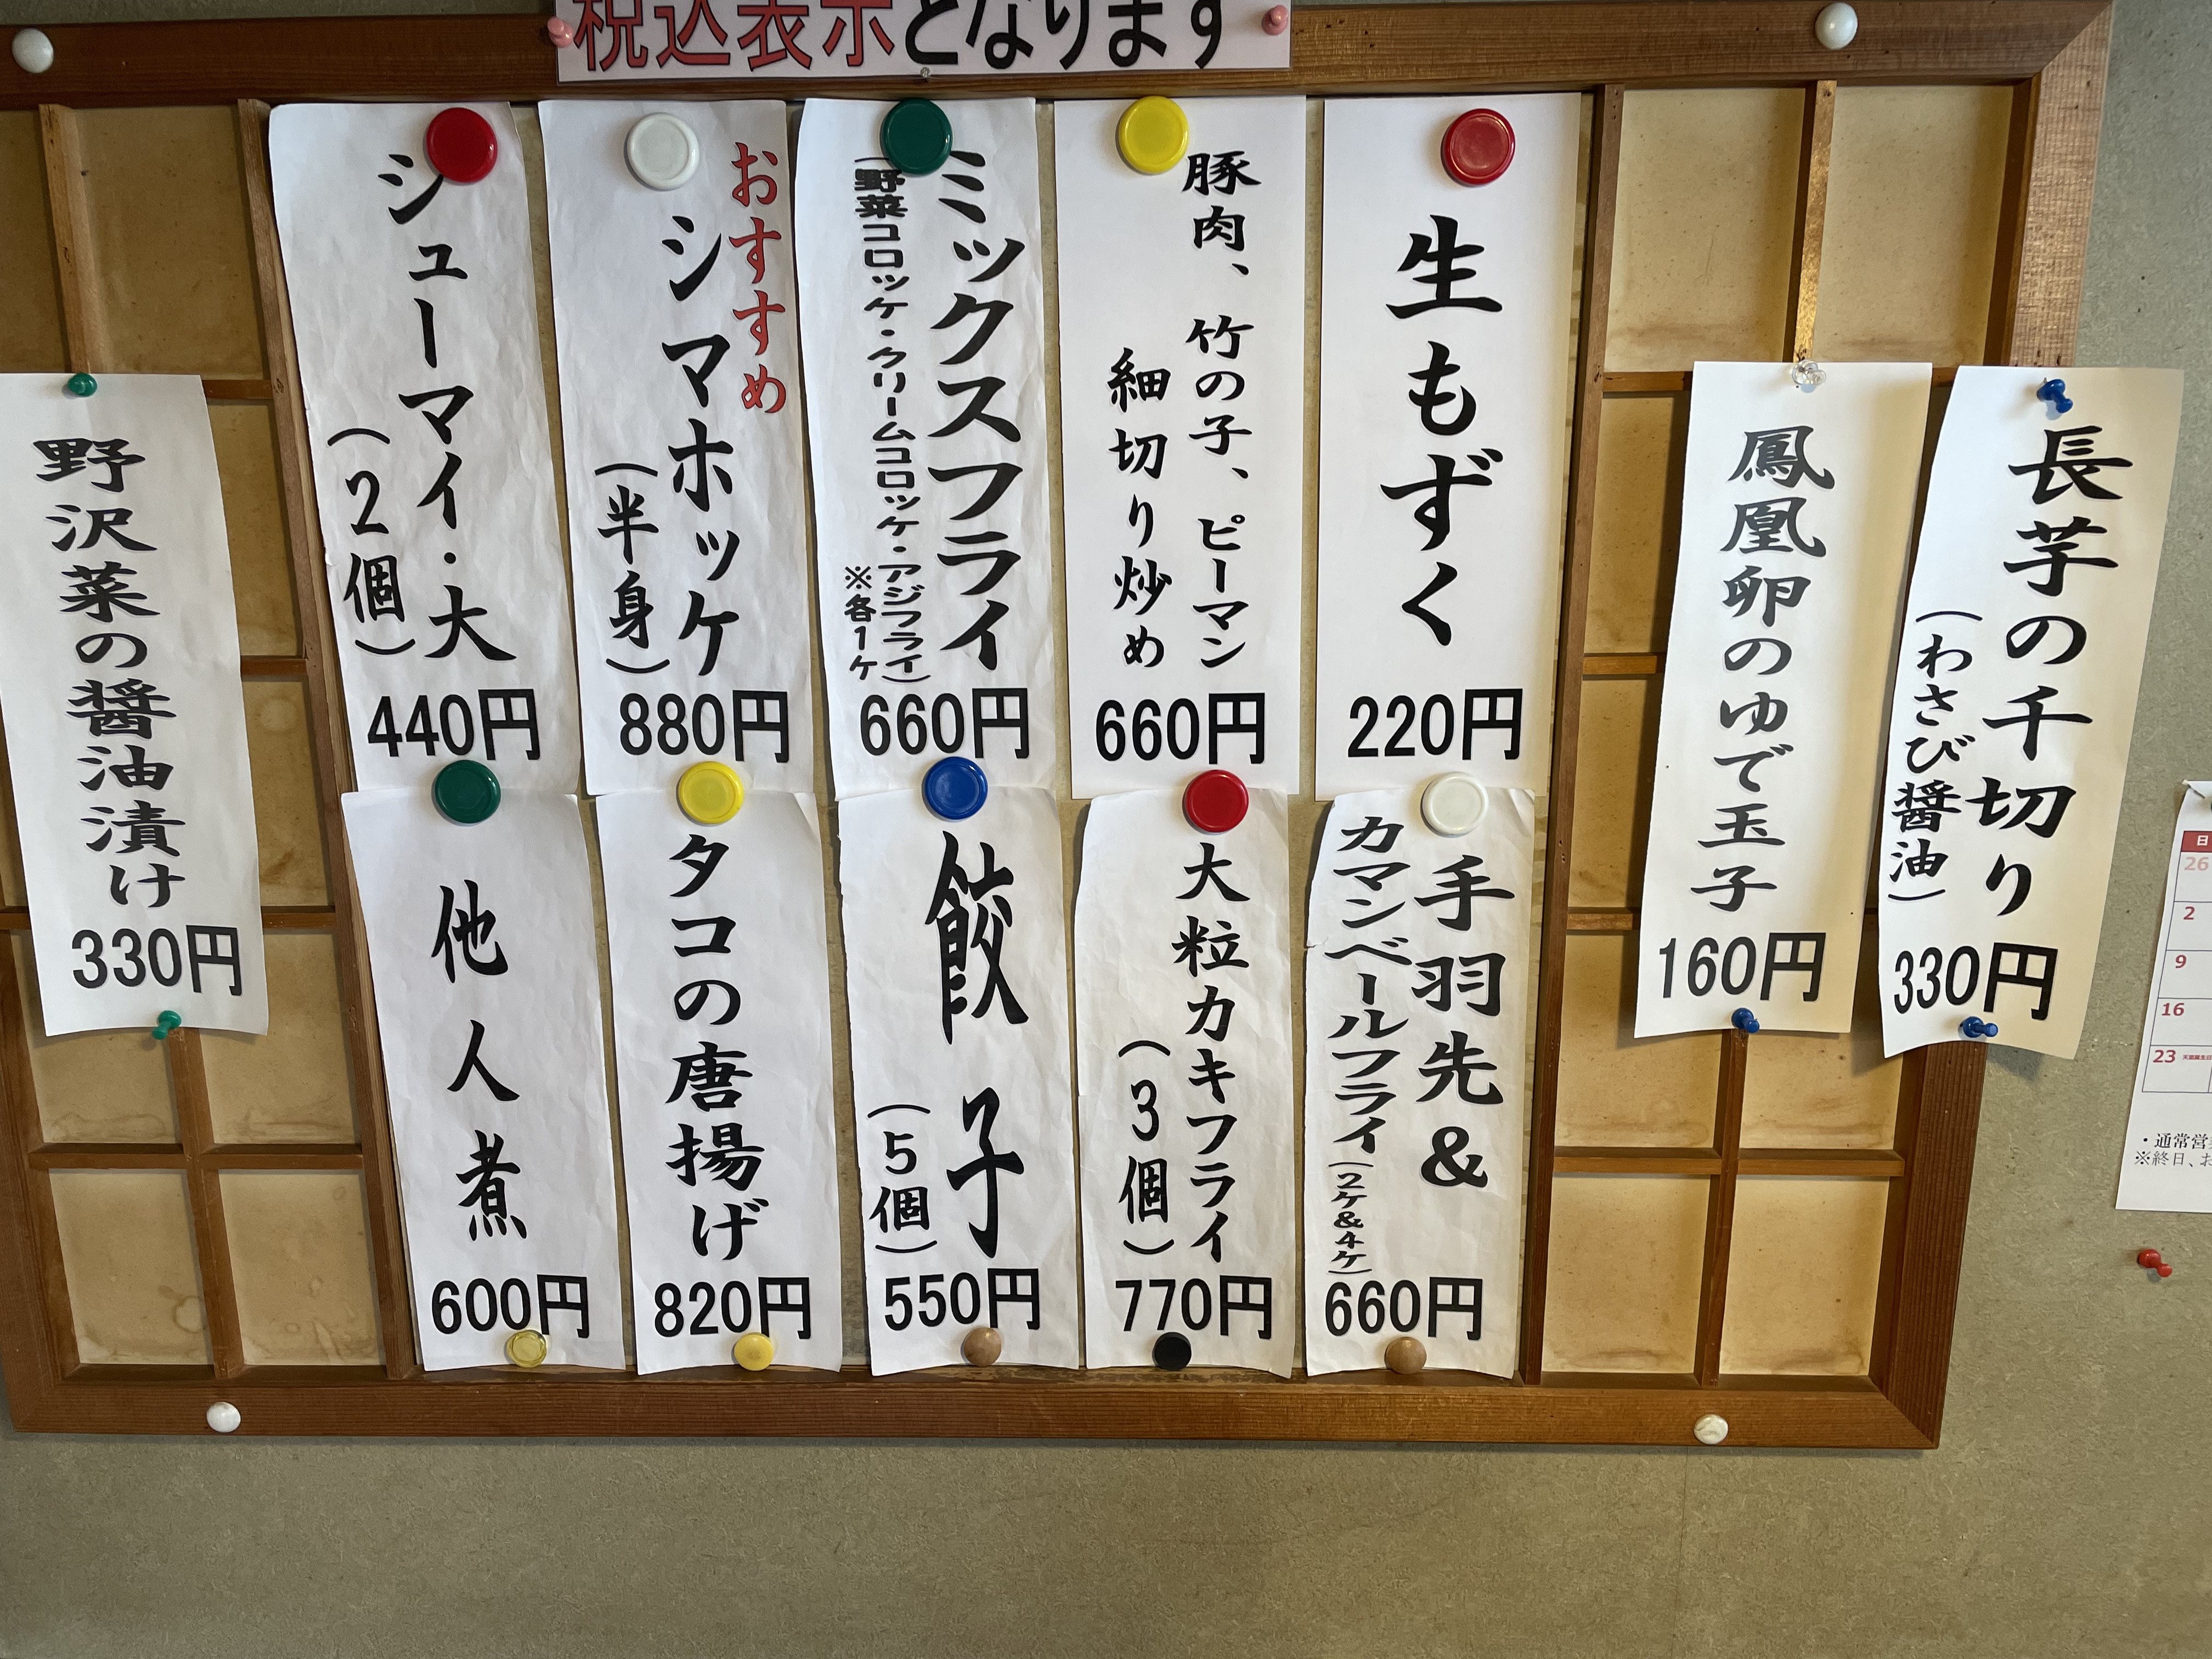 税込表示となります
長芋の千切り
(わさび醤油)
330円
鳳凰卵のゆで玉子
160円
生もずく
220円
豚肉、竹の子、ピーマン
細切り炒め
660円
ミックスフライ
(野菜コロッケ・クリームコロッケ・アジフライ)
※各1ケ
660円
おすすめ
シマホッケ
(半身)
880円
シューマイ・大
(2個)
440円
手羽先&
カマンベールフライ(2ケ&4ケ)
660円
大粒カキフライ
(3個)
770円
餃子
(5個)
550円
タコの唐揚げ
820円
他人煮
600円
野沢菜の醤油漬け
330円
日
26
2
9
16
23
・通常営
※終日、お